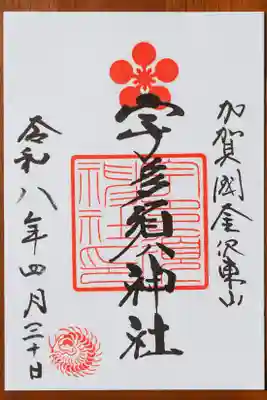 加賀國金沢東山
宇多須神社
令和八年四月三十日